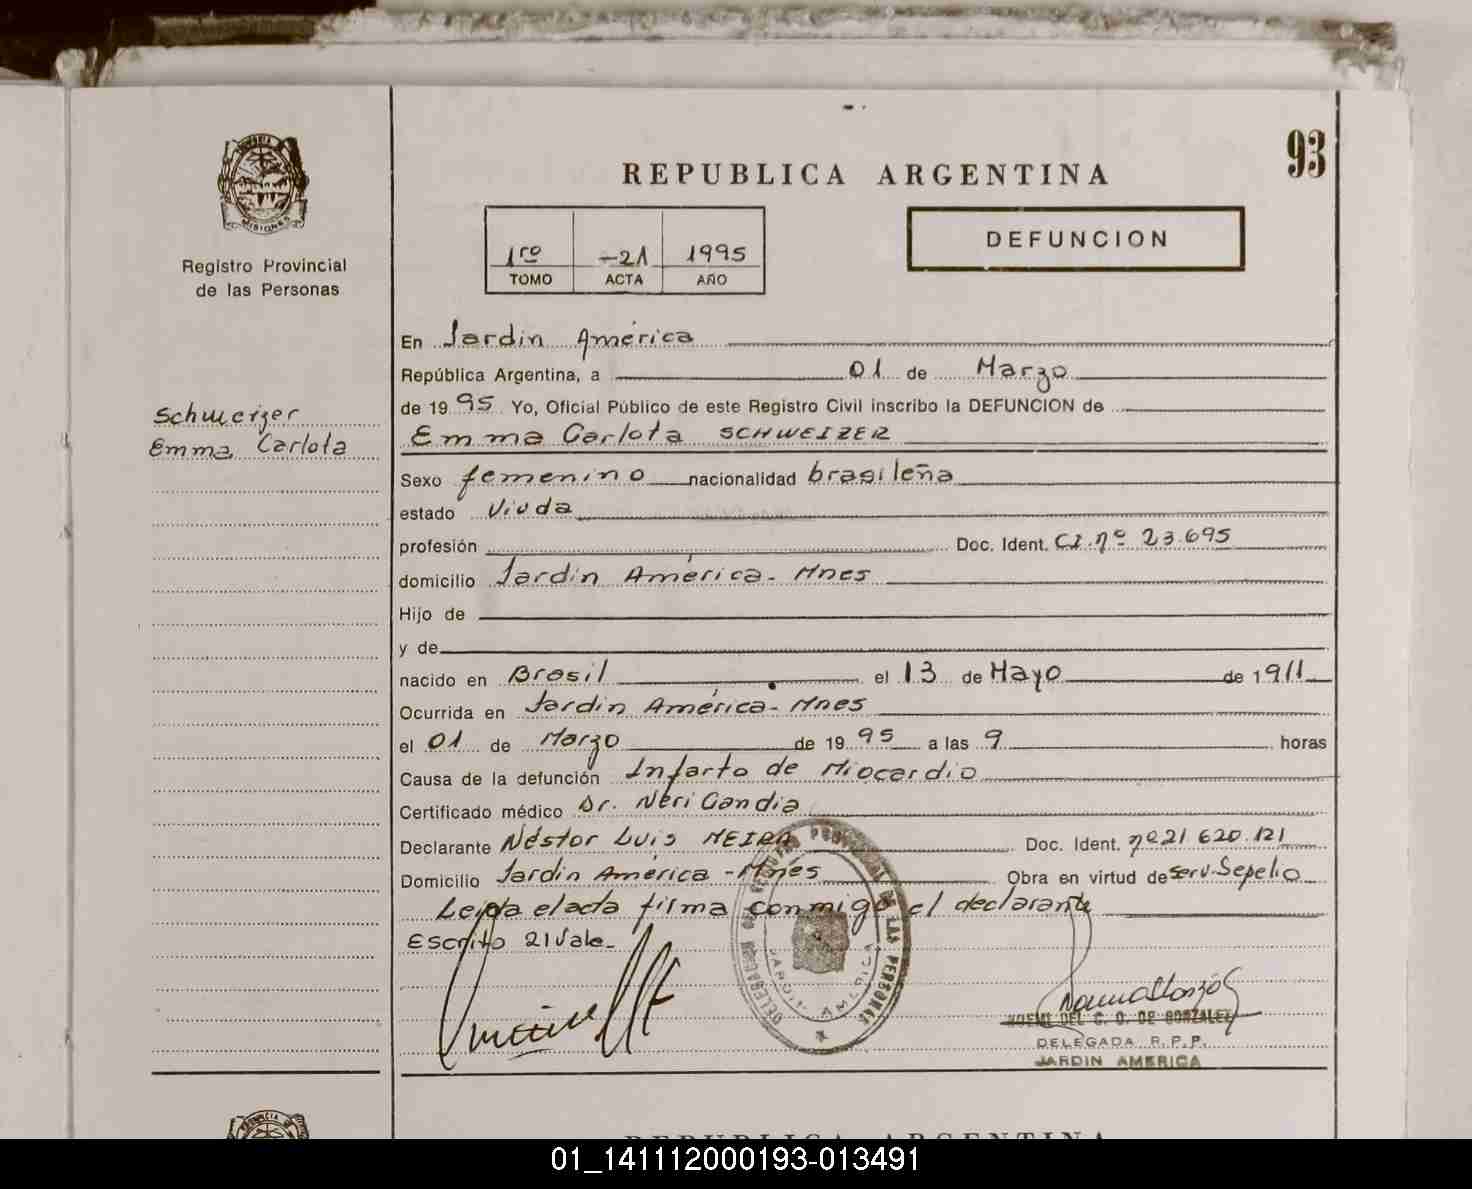 PROVINCIA DE
MISIONES
Registro Provincial
de las Personas
Schweizer
Emma Carlota
93
REPUBLICA ARGENTINA
1ro -21 1995
TOMO ACTA AÑO
DEFUNCION
En Jardín América
República Argentina, a 01 de Marzo
de 19 95 Yo, Oficial Público de este Registro Civil inscribo la DEFUNCION de
Emma Carlota SCHWEIZER
Sexo femenino nacionalidad brasileña
estado Viuda
profesión Doc. Ident. CI.nº 23.695
domicilio Jardín América - Mnes
Hijo de
y de
nacido en Brasil el 13 de Mayo de 1911
Ocurrida en Jardín América - Mnes
el 01 de Marzo de 19 95 a las 9 horas
Causa de la defunción Infarto de Miocardio
Certificado médico Dr. Neri Gandia
Declarante Néstor Luis MEIRA Doc. Ident. nº21 620.121
Domicilio Jardín América - Mnes Obra en virtud de serv. Sepelio
Leída el acta firma conmigo el declarante
Escrito 21 Vale-
DELEGACION REGISTRO PROVINCIAL DE LAS PERSONAS
JARDIN AMERICA
NOEMI DEL C. O. DE GONZALEZ
DELEGADA R.P.P.
JARDIN AMERICA
REPUBLICA ARGENTINA
01_141112000193-013491